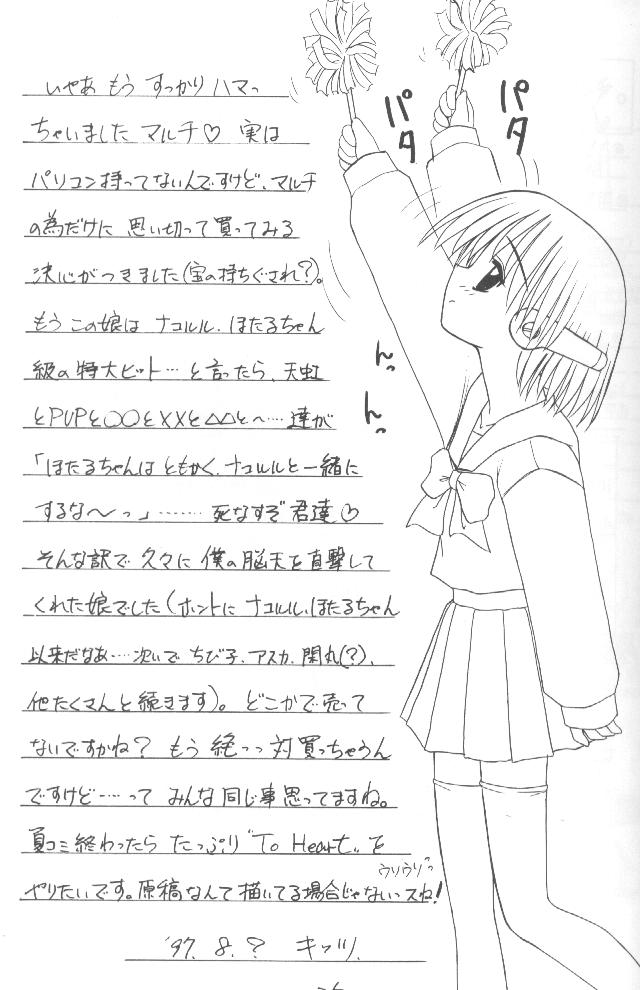 いやあ もう すっかり ハマっ
ちゃいました マルチ♡ 実は
パソコン持ってないんですけど、マルチ
の為だけに 思い切って買ってみる
決心がつきました(宝の持ちぐされ?)。
もう この娘は ナコルル、ほたるちゃん
級の特大ヒット…と言ったら、天虹
とPUPと○○と××と△△と〜…達が
「ほたるちゃんは ともかく、ナコルルと一緒に
するな〜っ」………死なすぞ 君達♡
そんな訳で 久々に 僕の脳天を直撃して
くれた娘でした(ホントに ナコルル、ほたるちゃん
以来だなあ…次いで ちび子、アスカ、関丸(?)、
他たくさんと続きます)。どこかで売って
ないですかね? もう 絶っっ対買っちゃうん
ですけど……って みんな同じ事思ってますね。
夏コミ終わったら たっぷり"To Heart"を
やりたいです。原稿なんて描いてる場合じゃないっスね!
ウリウリっ
'97. 8. ? キッツ.
パタ
パタ
んっ
んっ